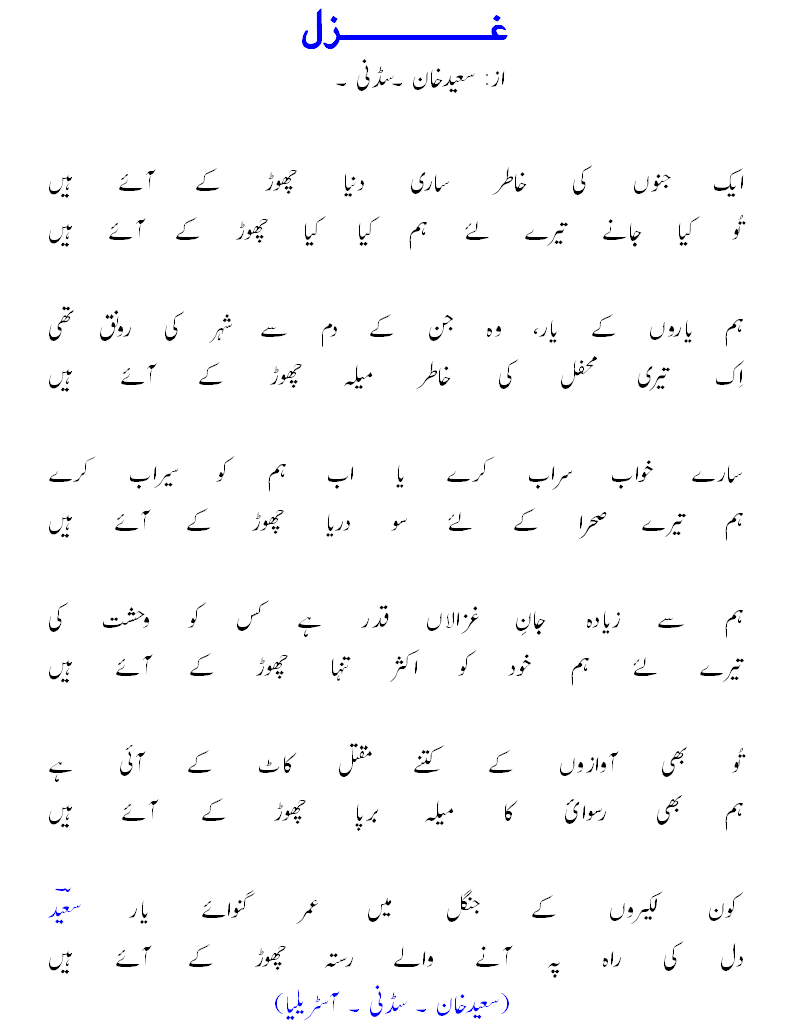 غزل
از: سعیدخان ۔سڈنی ۔
ایک جنوں کی خاطر ساری دنیا چھوڑ کے آئے ہیں
تُو کیا جانے تیرے لئے ہم کیا کیا چھوڑ کے آئے ہیں
ہم یاروں کے یار، وہ جن کے دم سے شہر کی رونق تھی
اِک تیری محفل کی خاطر میلہ چھوڑ کے آئے ہیں
سارے خواب سراب کرے یا اب ہم کو سیراب کرے
ہم تیرے صحرا کے لئے سو دریا چھوڑ کے آئے ہیں
ہم سے زیادہ جانِ غزالاں قدر ہے کس کو وحشت کی
تیرے لئے ہم خود کو اکثر تنہا چھوڑ کے آئے ہیں
تُو بھی آوازوں کے کتنے مقتل کاٹ کے آئی ہے
ہم بھی رسوائ کا میلہ برپا چھوڑ کے آئے ہیں
کون لکیروں کے جنگل میں عمر گنوائے یار سعیؔد
دل کی راہ پہ آنے والے رستہ چھوڑ کے آئے ہیں
(سعیدخان ۔ سڈنی ۔ آسٹریلیا)